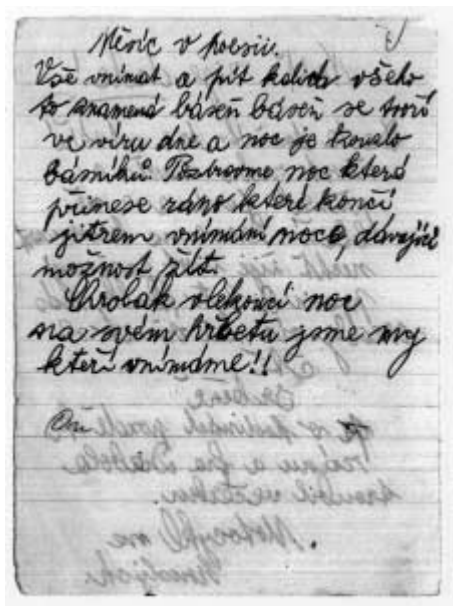 Měsíc v poesii.
Vše vnímat a pít kalich všeho
to znamená báseň báseň se tvoří
ve víru dne a noc je
básníků. Pozdravme noc která
přinese ráno které končí
jitrem vnímání noce, dávající
možnost žít.
Chrobák vlekoucí noc
na svém hřbetu jsme my
kteří vnímáme!!